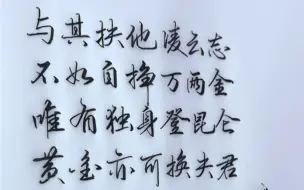 与其扶他凌云志
不如自挣万两金
唯有独身登昆仑
黄金亦可换夫君